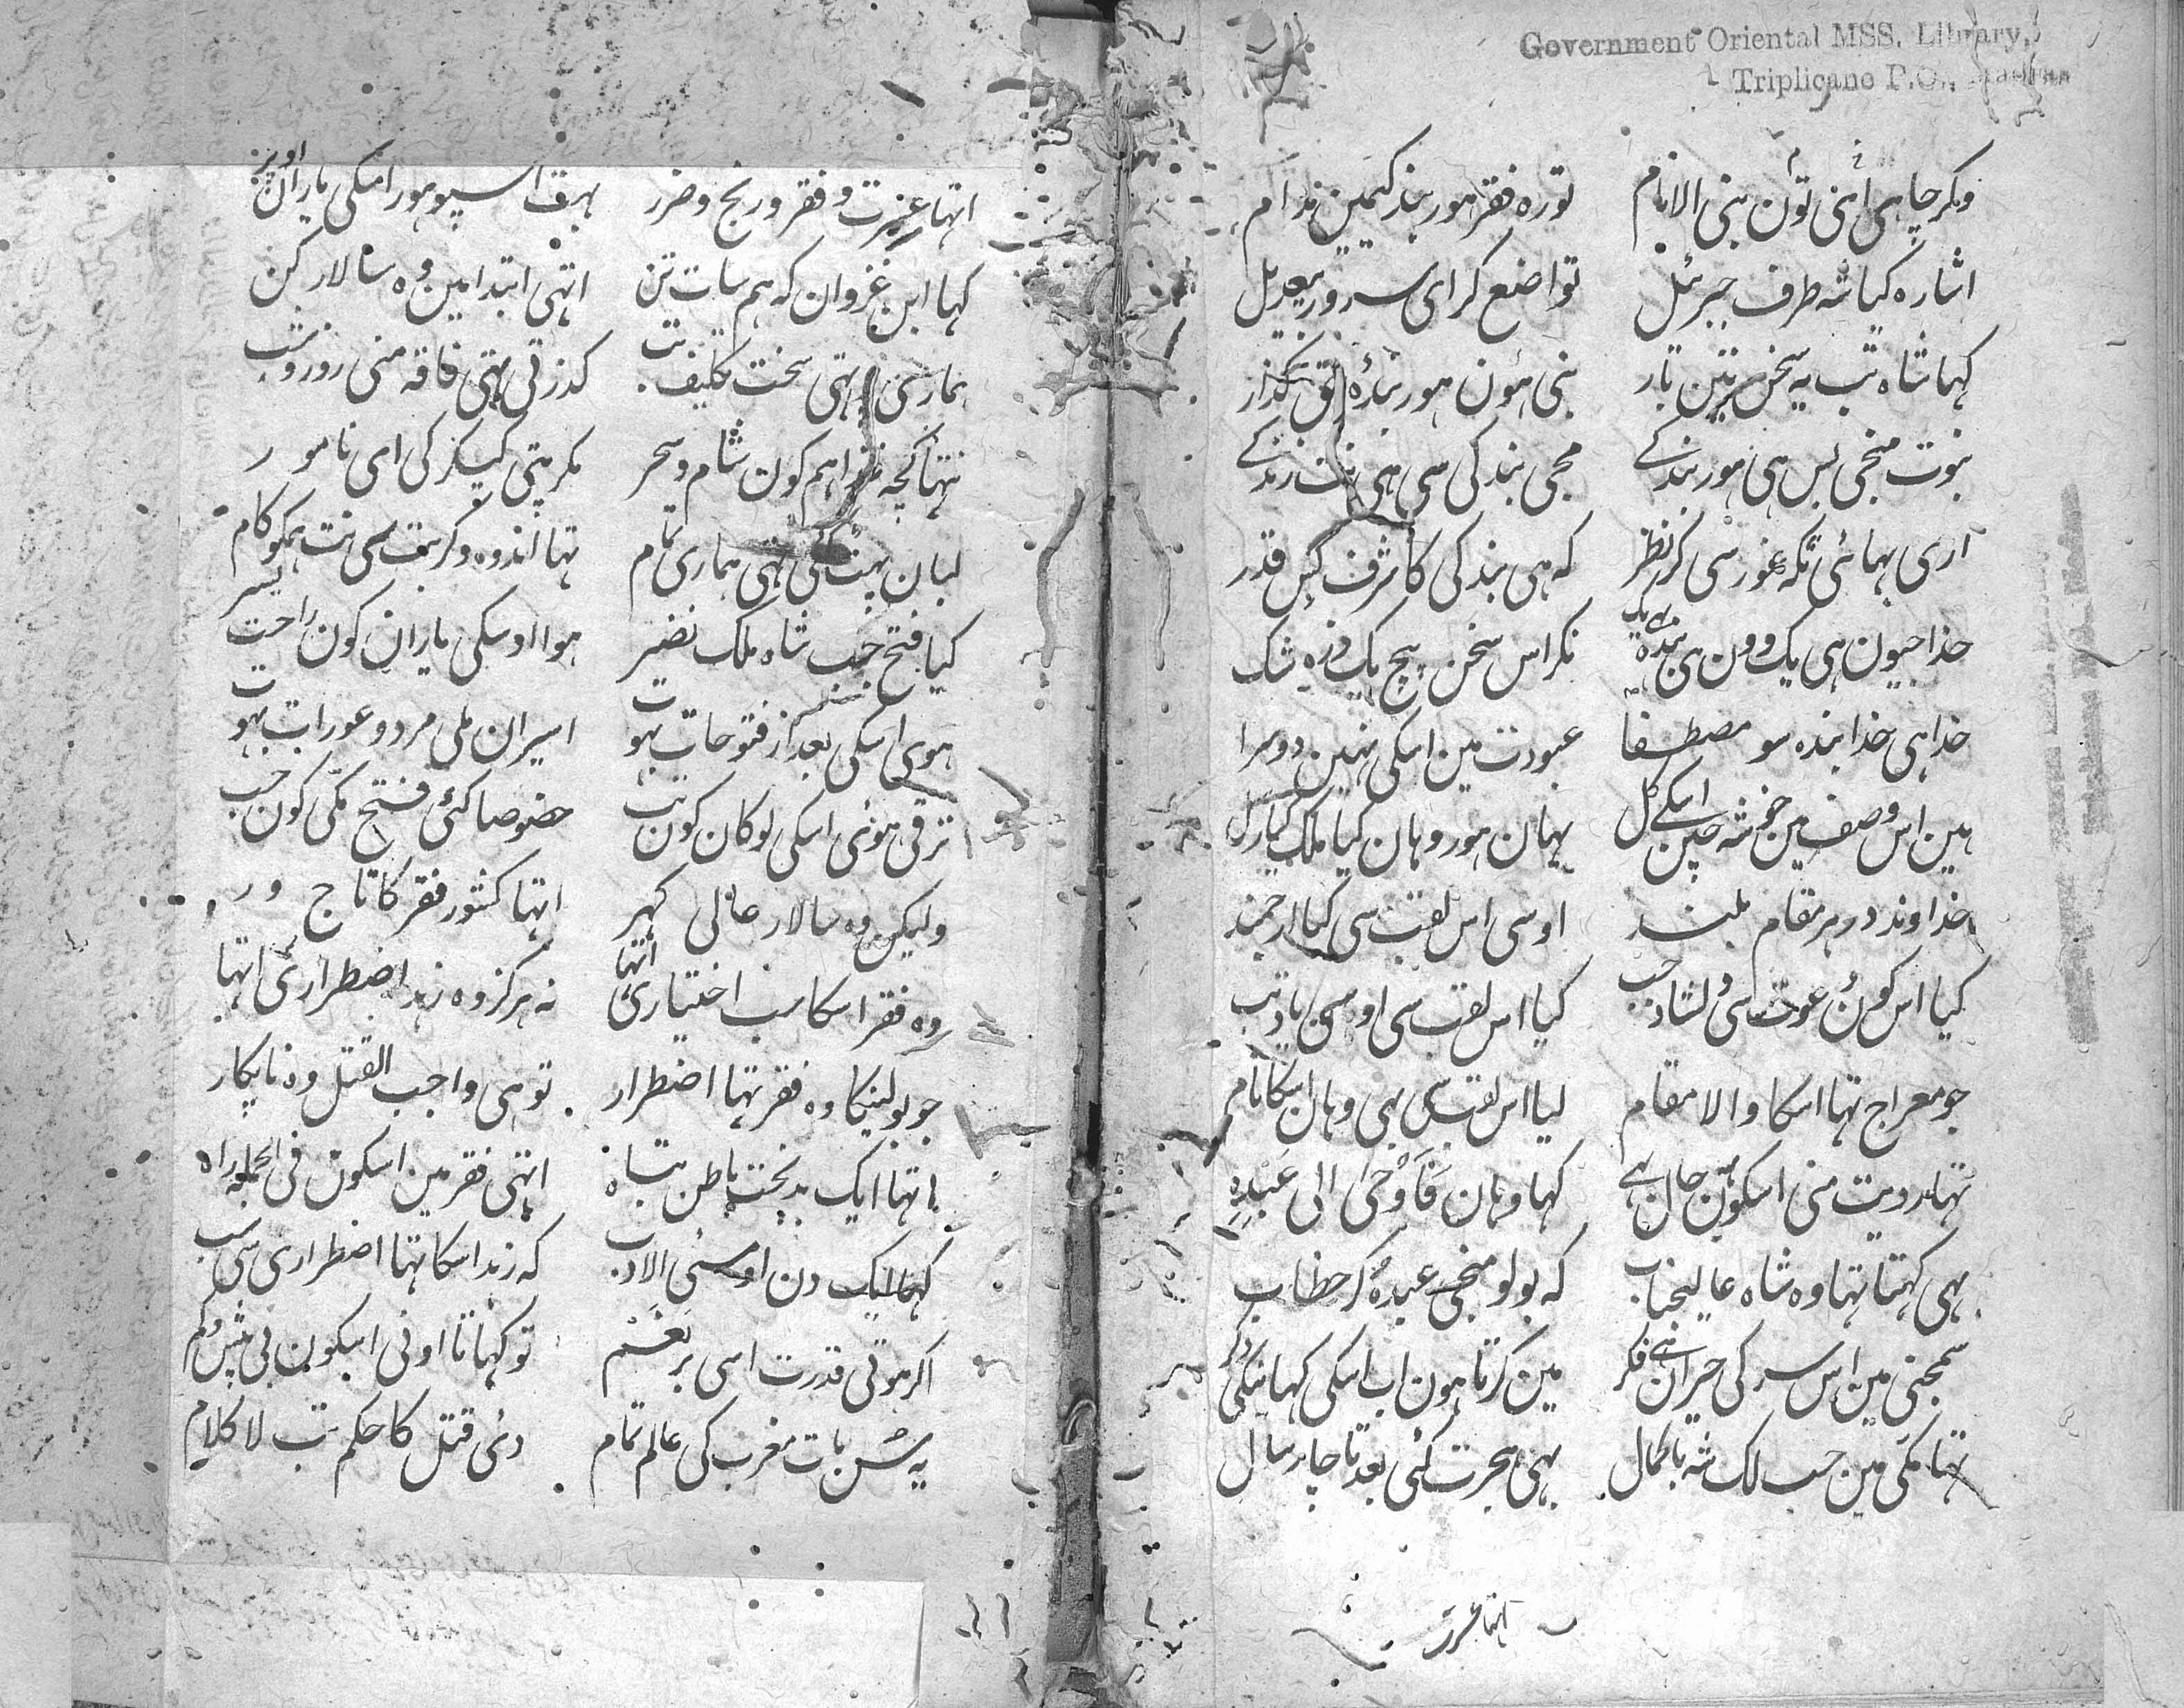 Government Oriental MSS. Library,
Triplicane P.O., Madras
وکر چاہی اپنی تون بنی الانام تو رہ فقر ہور بندکیمین مدام
اشارہ کیا شہ طرف جبرئل تواضع کر ای سرور بیعدیل
کہا شاہ تب یہ سخن تین بار بنی ہون ہور بندۂ حق گذار
نبوت منجی بس ہی ہور بندکے مجی بندکی سی ہی زندکے
اری بہائی تکہ غور سی کر نظر کہ ہی بندکی کا شرف کس قدر
خدا جیون ہی یک وون ہی بندہ یک نکر اس سخن بیچ یک ذرہ شک
خدا ہی خدا بندہ سو مصطفا عبودت مین اسکی نہین دوسرا
ہین اس وصف مین خوشہ چین اسکے کل یہان ہور وہان کیا ملک کیا رسل
خداوند در ہر مقام بلند اوسی اس لقب سی کیا ارجمند
کیا اس کون دعوت سی دلشاد جب کیا اس لقب سی اوسی یاد تب
جو معراج تہا اسکا والا مقام لیا اس لقب سی بہی وہان اسکا نام
تہا رویت منی اسکون جان ہے کہا وہان فَاَوْحٰی الی عَبْدِہِ
یہی کہتا تہا وہ شاہ عالیجناب کہ بولو منجی عبدہ کر خطاب
سمجنی مین اس سر کی حیران ہے فکر مین کرتا ہون اب اسکی کہانیکی ذکر
تہا مکی مین جب لک شہ باکمال بہی ہجرت کئی بعد تا چار سال
اتہا عزرت
اتہا عزرت و فقر و رنج و ضرر بہوت اسپو ہور اسکی یاران اوپر
کہا ابن غزوان کہ ہم سات تن اتہی ابتدا مین وہ سالار کن
ہماری اپر تہی سخت تکلیف تب کذرتی تہی فاقہ منی روز و شب
نتہا کچہ غذا ہم کون شام و سحر مکر پتی کیکر کی ای نامور
لبان پہٹ کئی تہی ہماری تمام تہا اندوہ و کربت سی نت ہمکو کام
کیا فتح جب شاہ ملک نضیر ہوا اوسکی یاران کون راحت یسیر
ہوی اسکی بعد از فتوحات بہوت اسیران ملی مرد و عورات بہوت
ترقی ہوئی اسکی لوکان کون تب خضوصا کئی فتح مکی کون جب
ولیکن وہ سالار عالی کہر اتہا کشور فقر کا تاج ور
وہ فقر اسکا سب اختیاری اتہا نہ ہرکز وہ زہد اضطراری اتہا
جو بولیکا وہ فقر تہا اضطرار تو ہی واجب القتل وہ نابکار
اتہا ایک بدبخت باطن تباہ اتہی فقر مین اسکون فی الجملہ راہ
کہا ایک دن او سنی الادب کہ زہد اسکا تہا اضطراری سی سب
اکر ہوتی قدرت اسی بر نَغَمْ تو کہاتا اونی اسکون بی بیش و کم
یہ سن بات مغرب کی عالم تمام دئی قتل کا حکم تب لا کلام